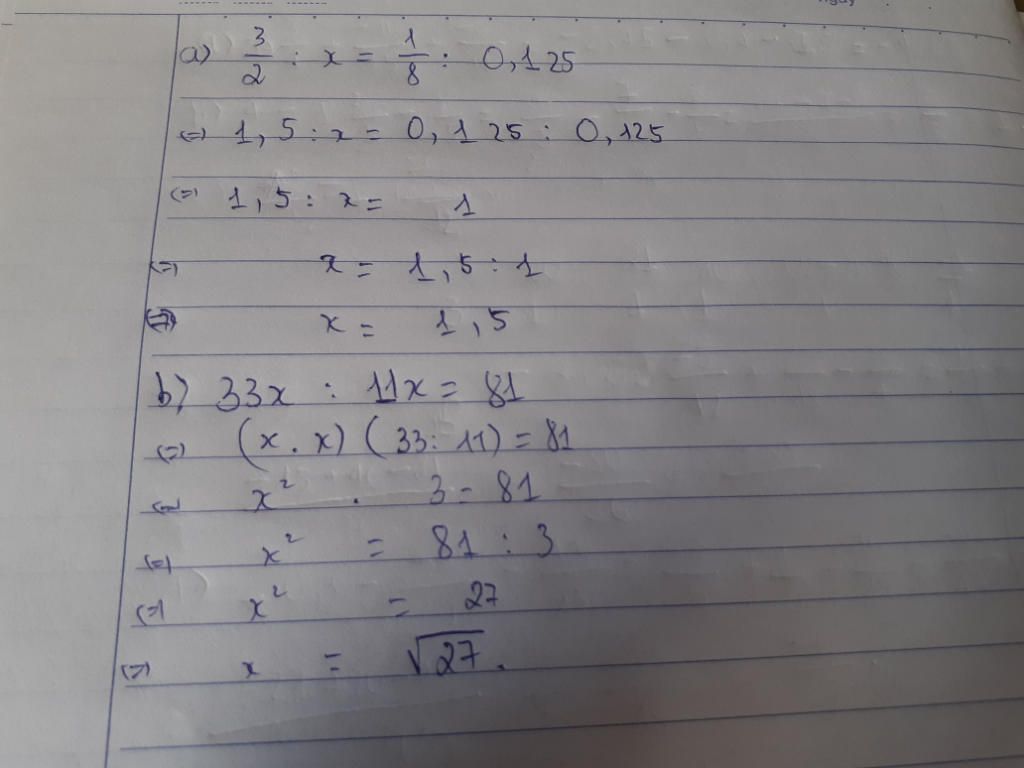 a) 3/2 : x = 1/8 : 0,125
(=) 1,5 : x = 0,125 : 0,125
(=) 1,5 : x = 1
(=) x = 1,5 : 1
(=) x = 1,5
b) 33x : 11x = 81
(=) (x . x) (33 : 11) = 81
(=) x² . 3 = 81
(=) x² = 81 : 3
(=) x² = 27
(=) x = √27.